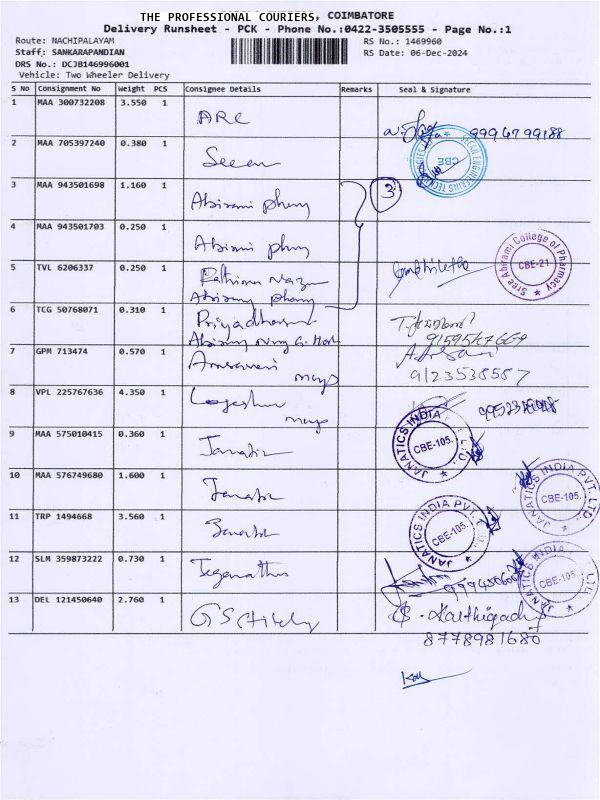 THE PROFESSIONAL COURIERS, COIMBATORE
Delivery Runsheet - PCK - Phone No.:0422-3505555 - Page No.:1
Route: NACHIPALAYAM RS No.: 1469960
Staff: SANKARAPANDIAN RS Date: 06-Dec-2024
DRS No.: DCJB146996001
Vehicle: Two Wheeler Delivery
S No Consignment No Weight PCS Consignee Details Remarks Seal & Signature
1 MAA 300732208 3.550 1 ARC 9994799188
2 MAA 705397240 0.380 1 CBE
3 MAA 943501698 1.160 1 Abirami 3
4 MAA 943501703 0.250 1 Abirami
Sree Abirami College of Pharmacy CBE-21
5 TVL 6206337 0.250 1 Rathima
6 TCG 50768071 0.310 1 Priyadharsni
7 GPM 713474 0.570 1
9123538587
8 VPL 225767636 4.350 1
JANATICS INDIA LTD. CBE-105.
9 MAA 575010415 0.360 1 Janatics
10 MAA 576749680 1.600 1 Janatics
JANATICS INDIA PVT. LTD. CBE-105.
11 TRP 1494668 3.560 1 Janatics
JANATICS INDIA PVT. CBE-105.
12 SLM 359873222 0.730 1 Jeganathan
JANATICS INDIA LTD CBE-105.
13 DEL 121450640 2.760 1
8778981680